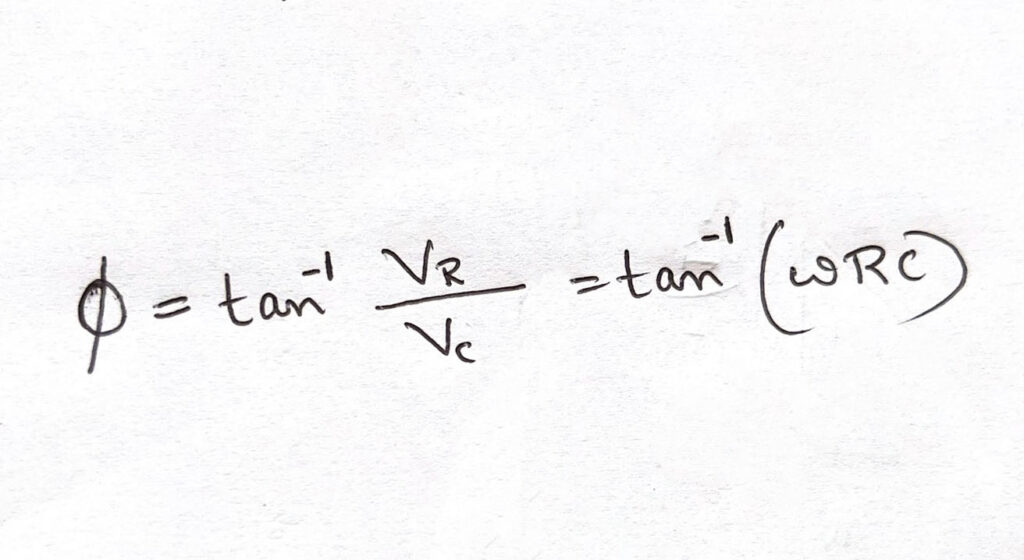 ϕ = tan⁻¹ V_R / V_C = tan⁻¹ (ωRC)